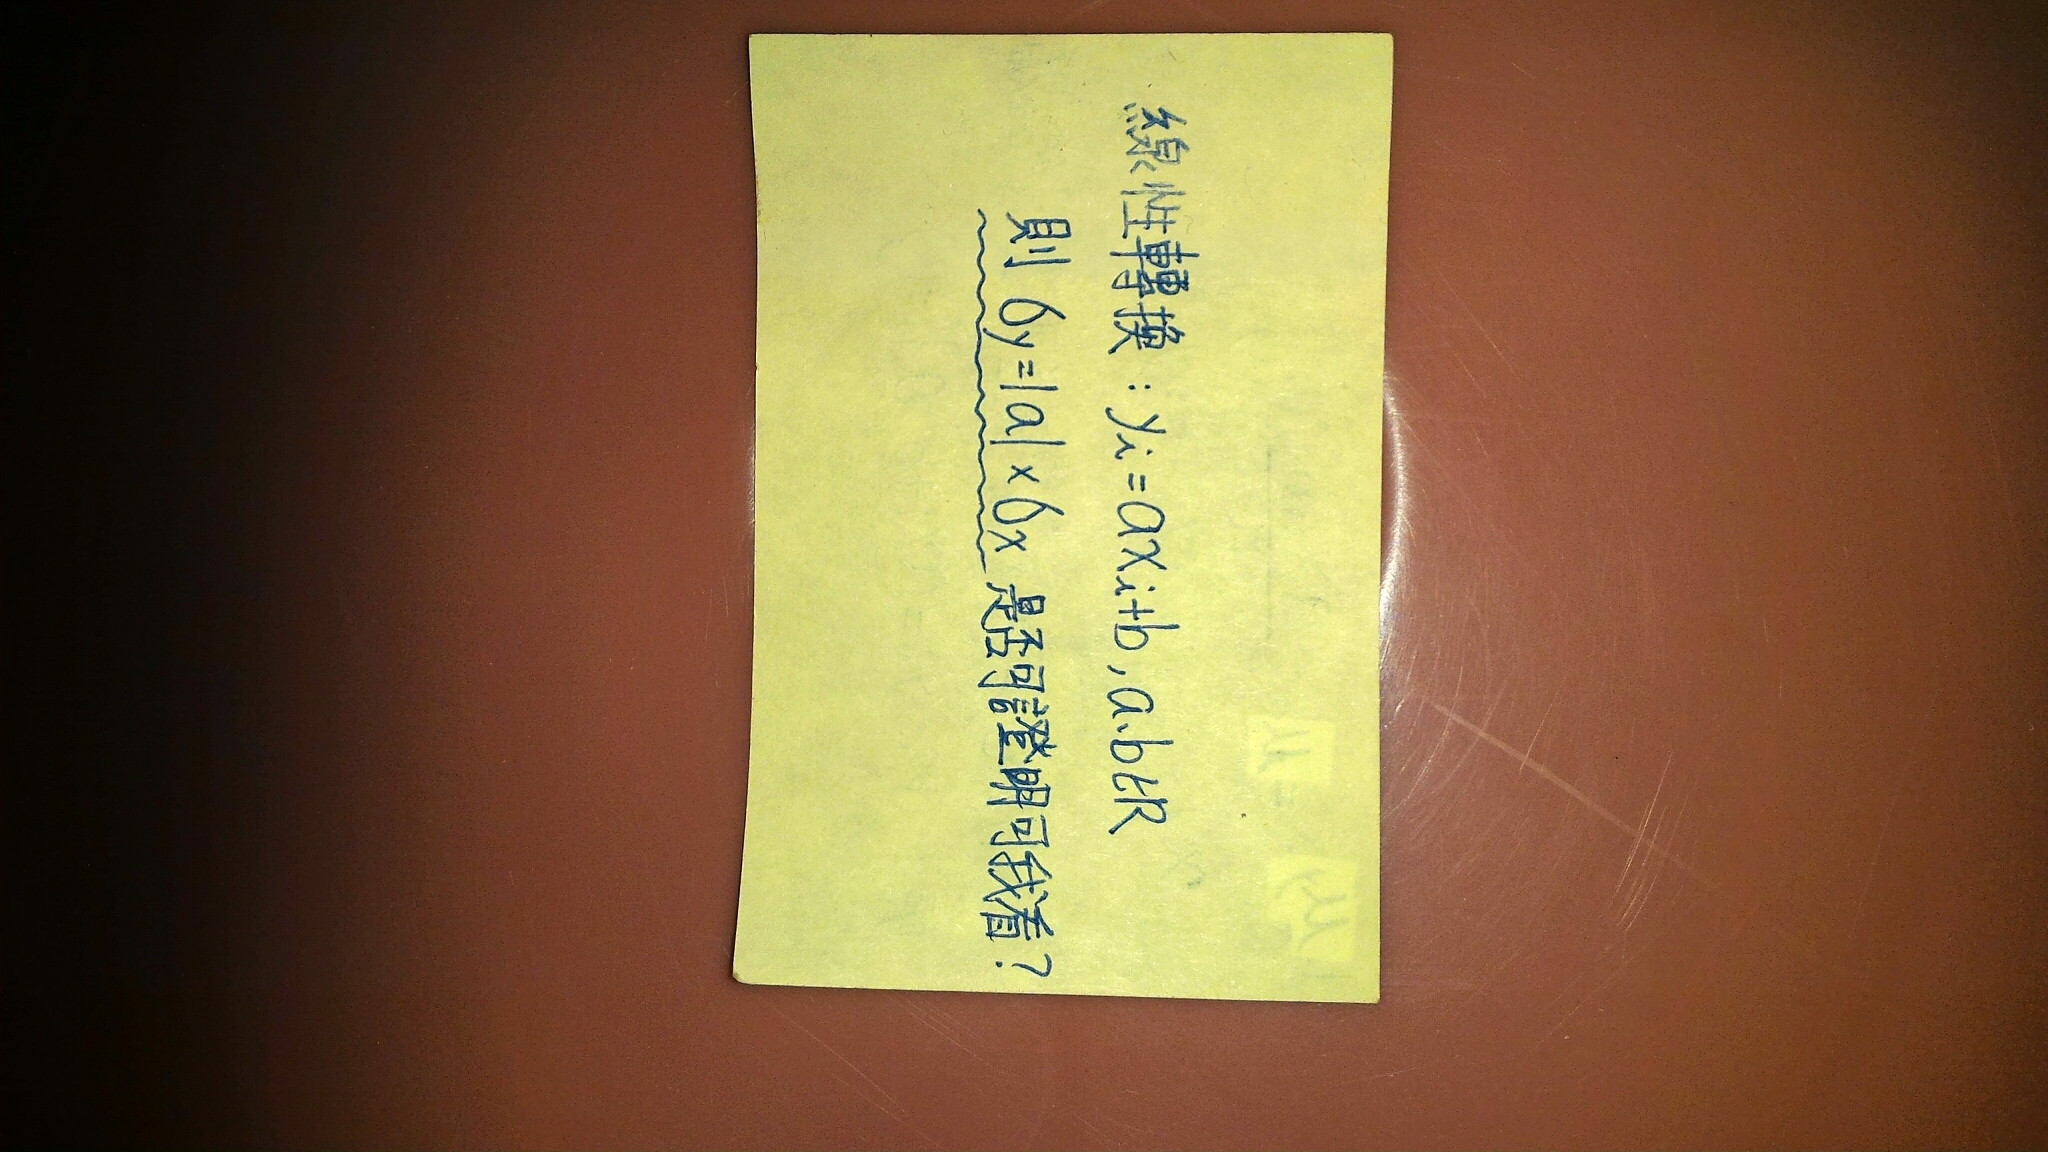 線性轉換：yi=axi+b,a、b∈R
則 σy=|a|×σx 是否可證明可我看？